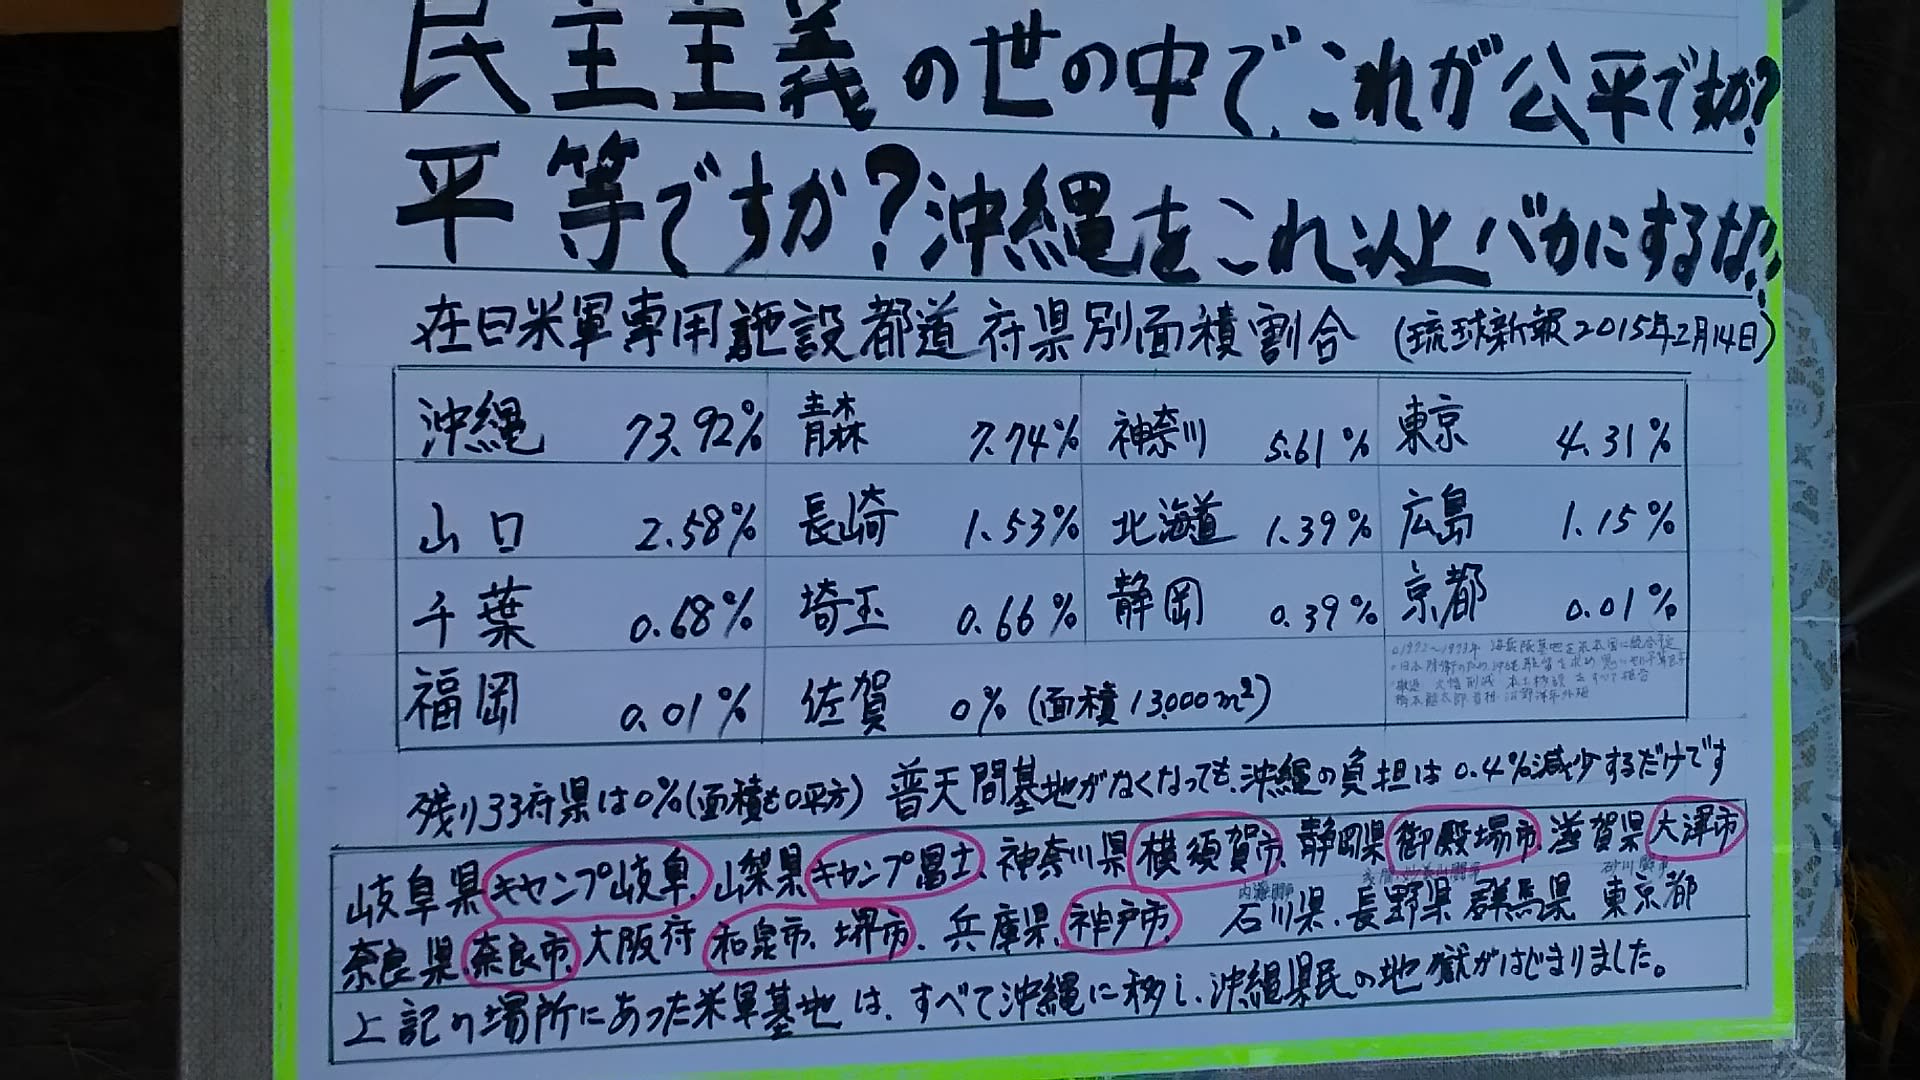 民主主義の世の中で、これが公平ですか?
平等ですか?沖縄をこれ以上バカにするな!?
在日米軍専用施設都道府県別面積割合 (琉球新報2015年2月14日)
沖縄 73.92% 青森 7.74% 神奈川 5.61% 東京 4.31%
山口 2.58% 長崎 1.53% 北海道 1.39% 広島 1.15%
千葉 0.68% 埼玉 0.66% 静岡 0.39% 京都 0.01%
福岡 0.01% 佐賀 0% (面積13,000m²)
残り33府県は0%(面積も0平方) 普天間基地がなくなっても、沖縄の負担は0.4%減少するだけです
岐阜県 キャンプ岐阜、山梨県 キャンプ富士、神奈川県 横須賀市、静岡県 御殿場市、滋賀県 大津市
内灘闘争 浅間・妙義山闘争 砂川闘争
奈良県、奈良市、大阪府 和泉市、堺市、兵庫県、神戸市、石川県、長野県 群馬県 東京都
上記の場所にあった米軍基地は、すべて沖縄に移し、沖縄県民の地獄がはじまりました。